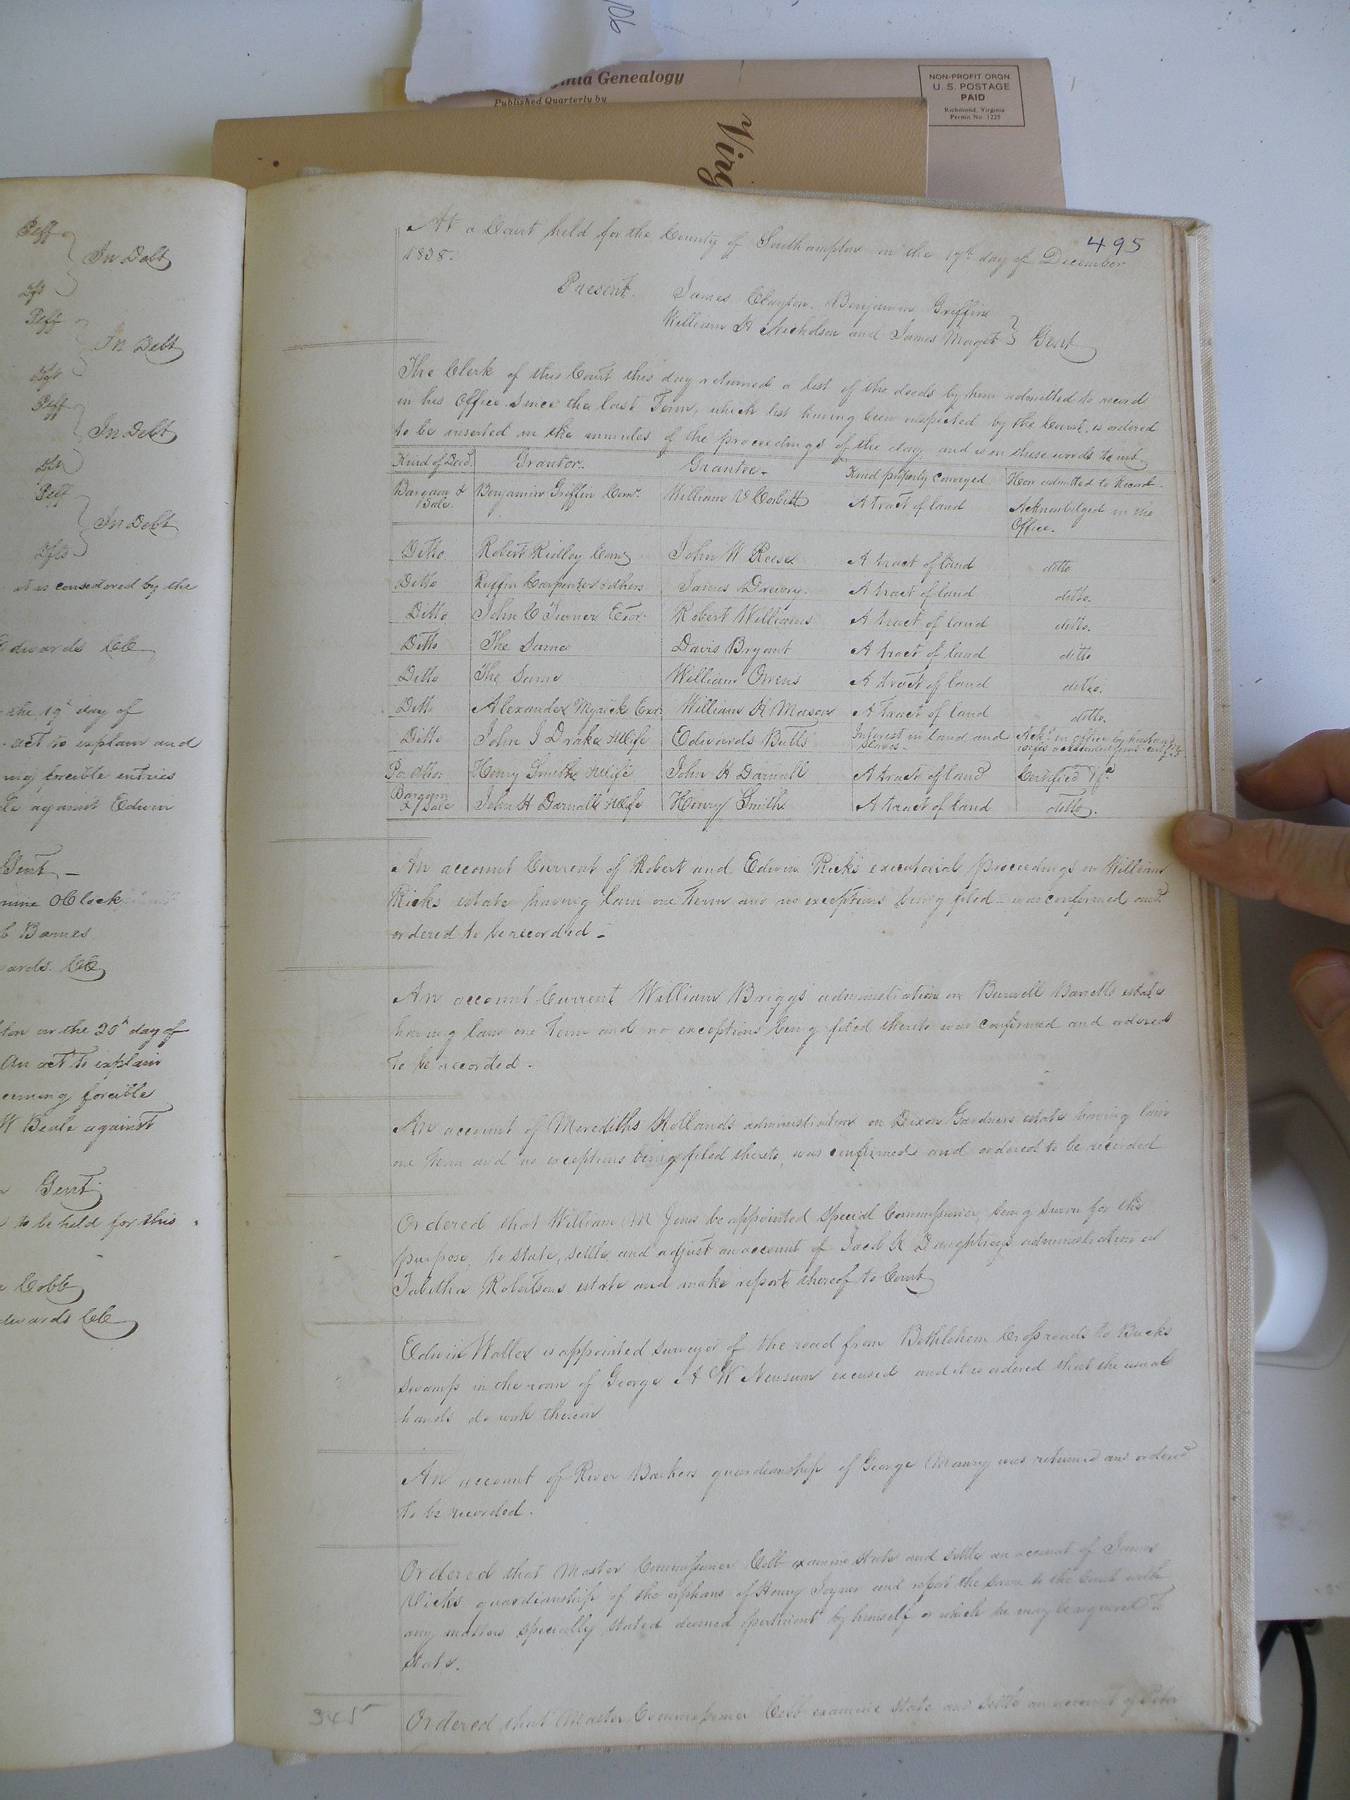 106
Virginia Genealogy
Published Quarterly by
NON-PROFIT ORGN
U. S. POSTAGE
PAID
Richmond, Virginia
Permit No. 1225
Virg
Plff
In Debt
Dft
Plff
In Debt
Dft
Plff
In Debt
Dft
Plff
In Debt
Dfts
it is considered by the
Edwards CC
the 19th day of
act to explain and
ing forcible entries
against Edwin
Gent
nine OClock
C Barnes
wards CC
ton on the 20th day of
An act to explain
cerning forcible
W Beale against
Gent
to be held for this
Cobb
dwards CC
495
At a Court held for the County of Southampton on the 17th day of December
1838.
Present. James Clayton. Benjamin Griffin
William H Nicholson and James Maget Gent
The Clerk of this Court this day returned a list of the deeds by him admitted to record
in his Office Since the last Term, which list having been inspected by the Court, is ordered
to be inserted in the minutes of the proceedings of the day, and is in these words to wit
Kind of Deed. Grantor. Grantee. Kind property conveyed How admitted to Record
Bargain & Sale. Benjamin Griffin Comr. William Corbitt A tract of land Acknowledged in the
Office.
Ditto Robert Ridley Comr John W Reese A tract of land ditto
Ditto Ruffin Carpenter & others James Drewry. A tract of land ditto.
Ditto John C Turner Exor. Robert Williams A tract of land ditto.
Ditto The Same Davis Bryant A tract of land ditto
Ditto The Same William Owens A tract of land ditto.
Ditto Alexander Myrick Exor William H Mason A tract of land ditto.
Ditto John J Drake & Wife Edwards Butts Interest in land and
Slaves. Ackd in office by husband
Partition Henry Smith & Wife John H Darnall A tract of land Certified
Bargain & Sale John H Darnall & Wife Henry Smith A tract of land ditto.
An account Current of Robert and Edwin Ricks executorial proceedings on William
Ricks estate having lain one Term and no exceptions being filed was confirmed and
ordered to be recorded
An account Current William Briggs administration on Burwell Barretts estate
having lain one Term and no exceptions being filed thereto was confirmed and ordered
to be recorded.
An account of Merediths Hollands administration on Dixon Gardners estate having lain
one Term and no exceptions being filed thereto, was confirmed and ordered to be recorded
Ordered that William M Jones be appointed special Commissioner, being sworn for this
purpose, to state, settle and adjust an account of Jacob H Daughtreys administration on
Tabitha Robertsons estate and make report thereof to Court
Edwin Waller is appointed surveyor of the road from Bethlehem Cross roads to Bucks
swamp in the room of George A W Newsum excused and it is ordered that the usual
hands do work thereon
An account of River Barkers guardianship of George Maury was returned and ordered
to be recorded.
Ordered that Master Commissioner Cobb examine State and settle an account of James
Vicks guardianship of the orphans of Henry Joyner and report the same to the Court with
any matters specially stated deemed pertinent by himself or which he may be required to
State.
345
Ordered that Master Commissioner Cobb examine state and settle an account of Peter